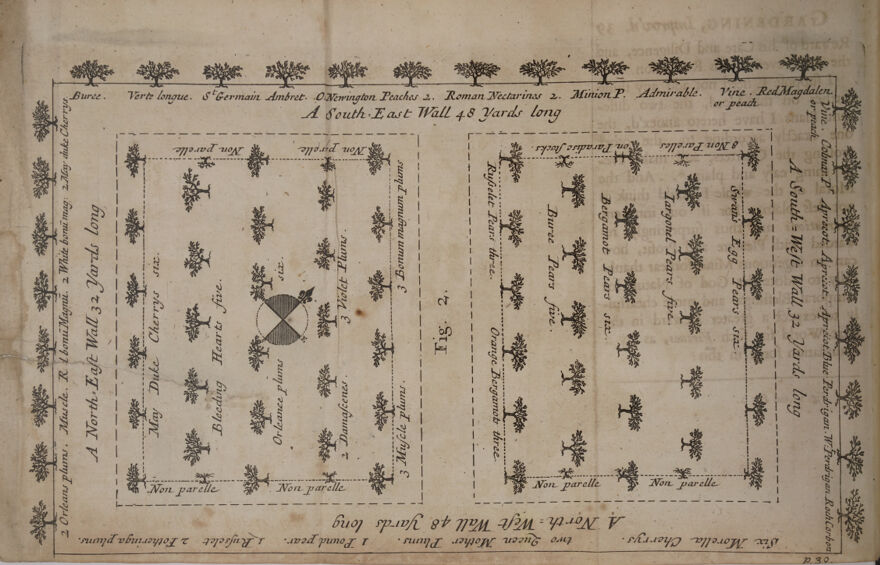 Buree. Verte longue. St Germain Ambret. O Newington Peaches 2. Roman Nectarines 2. Minion P. Admirable. Vine or peach Red Magdalen
A South-East Wall 48 Yards long
2 Orleans plums. Muscle. R. l bonū Magnū. 2 White bonū mag: 2 May duke Cherrys
A North-East Wall 32 Yards long
Non parelle Non prelle
May Duke Cherrys six.
Bleeding Hearts five.
Orleance plums six.
2 Damascenes. 3 Violet Plums.
3 Muscle plums. 3 Bonum magnum plums
Non parelle Non parelle
Fig. 2.
on Paradice stocks 8 Non Parelles
Ruselè Pears three. Orange Bergamots three.
Buree Pears five.
Bergamot Pears six.
Largonel Pears five.
Swans Egg Pears six.
Non parelle Non parelle
A South-West Wall 32 Yards long
Vine or peach Apricot. Apricot. Apricot Blue Perdrigon. W. Perdrigan
A North-West Wall 48 Yards long
Six Morella Cherrys. two Queen Mother Plums. 1 Pound pear. 1 Russelet 2 Fotheringa plums.
p. 30
GARDENING, Improv'd. 39